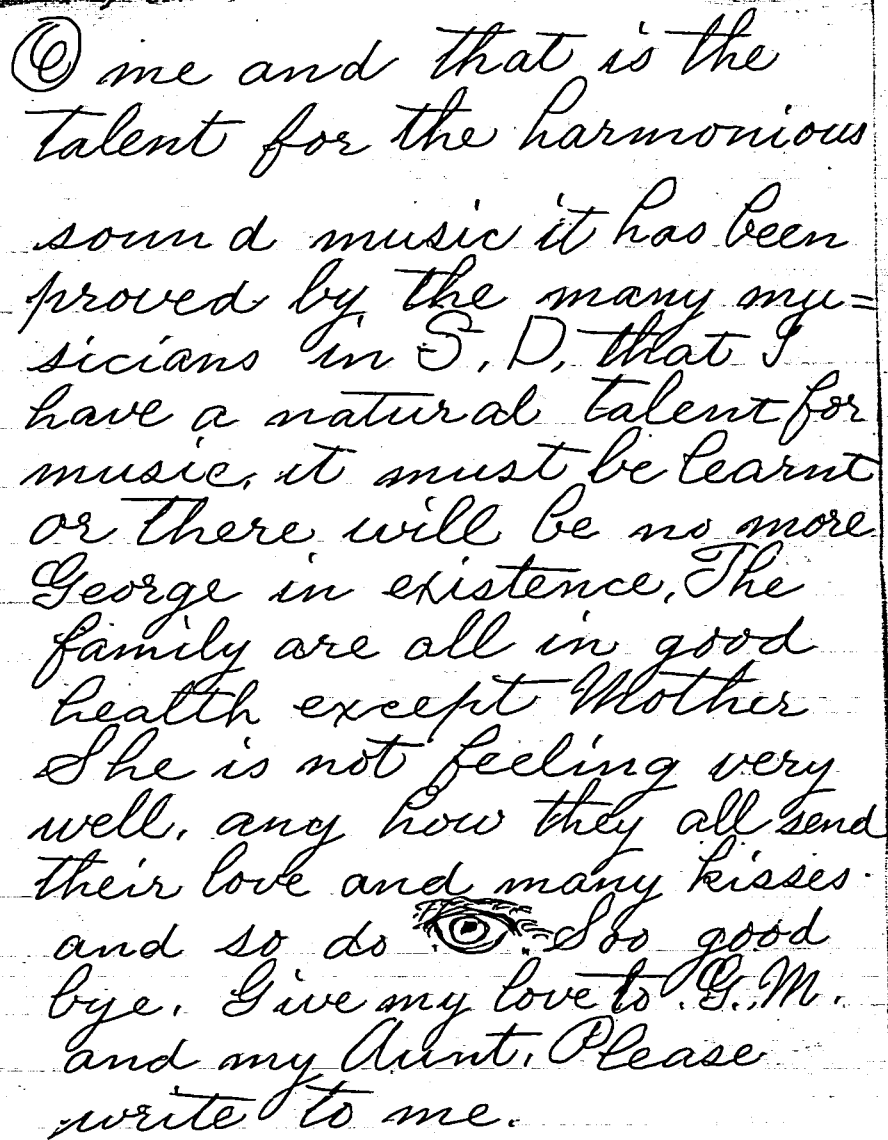 6 me and that is the
talent for the harmonious
sound music it has been
proved by the many mu=
sicians in S. D. that I
have a natural talent for
music. it must be learnt
or there will be no more
George in existence. The
family are all in good
health except Mother
She is not feeling very
well. any how they all send
their love and many kisses.
and so do . Soo good
bye. Give my love to G. M.
and my Aunt. Please
write to me.